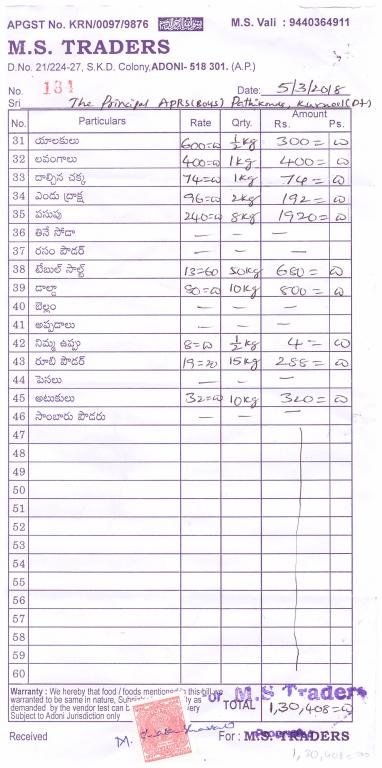 APGST No. KRN/0097/9876 M.S. Vali : 9440364911
M.S. TRADERS
D.No. 21/224-27, S.K.D. Colony, ADONI- 518 301. (A.P.)
No. 131 Date: 5/3/2018
Sri The Principal APRS(Boys) Kurnool(Dt)
No. Particulars Rate Qrty. Amount Rs. Ps.
31 యాలకులు 600=00 ½kg 300=00
32 లవంగాలు 400=00 1kg 400=00
33 దాల్చిన చక్క 74=00 1kg 74=00
34 ఎండు ద్రాక్ష 96=00 2kg 192=00
35 పసుపు 240=00 8kg 1920=00
36 తినే సోడా — — —
37 రసం పౌడర్ — — —
38 టేబుల్ సాల్ట్ 13=60 50kg 680=00
39 డాల్డా 80=00 10kg 800=00
40 బెల్లం — — —
41 అప్పడాలు — — —
42 నిమ్మ ఉప్పు 8=00 ½kg 4=00
43 రూబి పౌడర్ 19=20 15kg 288=00
44 పెసలు — — —
45 అటుకులు 32=00 10kg 320=00
46 సాంబారు పౌడరు — — —
47
48
49
50
51
52
53
54
55
56
57
58
59
60
Warranty : We hereby that food / foods mentioned in this bill
warranted to be same in nature, as
demanded by the vendor test
Subject to Adoni Jurisdiction only
For M.S Traders
TOTAL 1,30,408=00
Received For : M.S. TRADERS
1,30,408=00